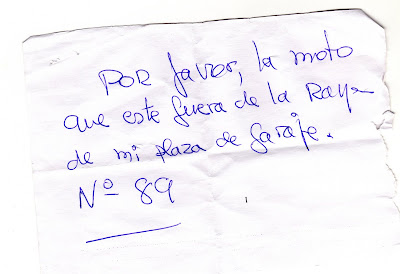 POR favor, la moto
que este fuera de la Raya
de mi plaza de Garaje.
Nº 89